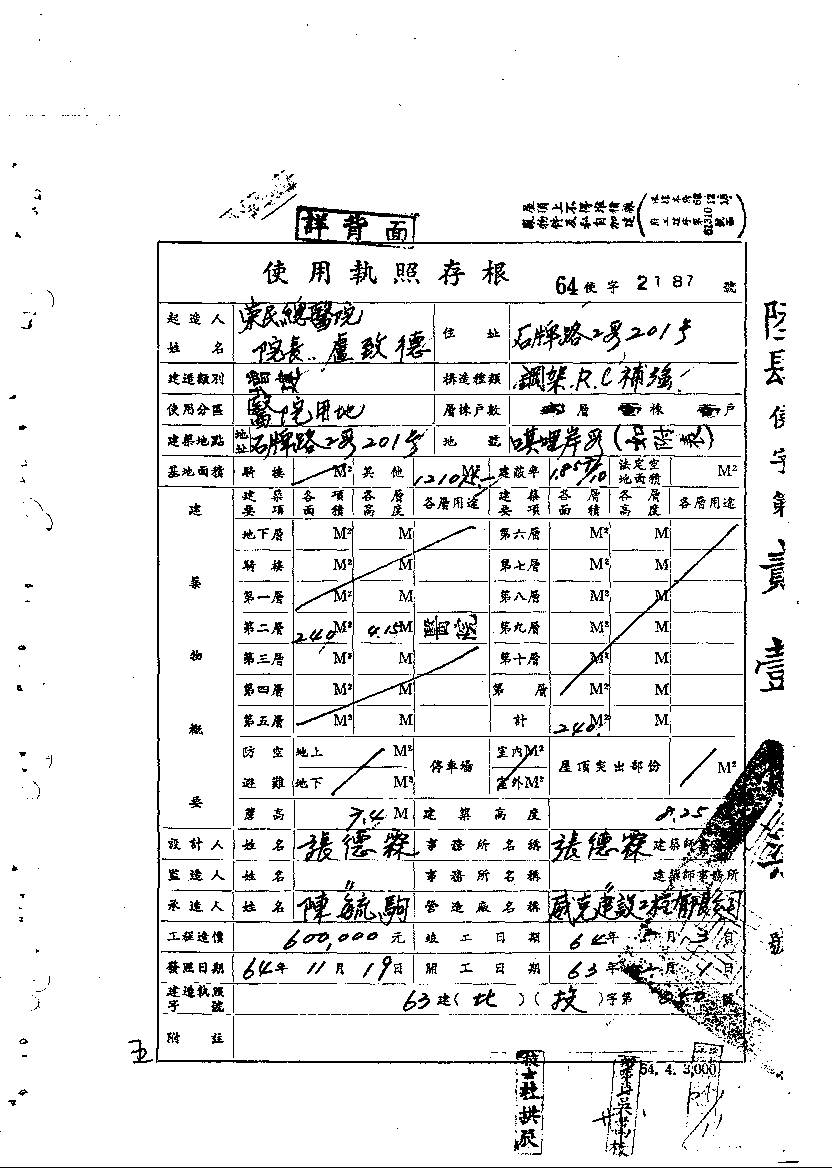 屋頂上不得堆積雜
廢物件及私自加建
詳背面
使用執照存根
64使字2187號
起造人姓名 榮民總醫院
院長：盧致德
住址 石牌路2號201号
建造類別
構造種類 鋼架.R.C補強
使用分區 醫院用地
層棟戶數 層 棟 戶
建築地點 地址 石牌路2号201号
地號 唭哩岸段(如附表)
基地面積 騎樓 M² 其他 1210M² 建蔽率 法定空地面積 M²
建築物概要
建築要項 各項面積 各層高度 各層用途 建築要項 各層面積 各層高度 各層用途
地下層 M² M 第六層 M² M
騎樓 M² M 第七層 M² M
第一層 M² M 第八層 M² M
第二層 240M² 4.15M 醫院 第九層 M² M
第三層 M² M 第十層 M² M
第四層 M² M 第 層 M² M
第五層 M² M 計 240M²
防空避難 地上 M² 地下 M² 停車場 室內M² 室外M² 屋頂突出部份 M²
簷高 7.4M 建築高度 8.25
設計人 姓名 張德霖 事務所名稱 張德霖 建築師事務所
監造人 姓名 〃 事務所名稱 〃 建築師事務所
承造人 姓名 陳毓駒 營造廠名稱
工程造價 600,000元 竣工日期 64年 月 3日
發照日期 64年11月19日 開工日期 63年 月1日
建造執照字號 63建(北)(投)字第 號
附註
五
64. 4. 3,000
使字第
貳
壹
號